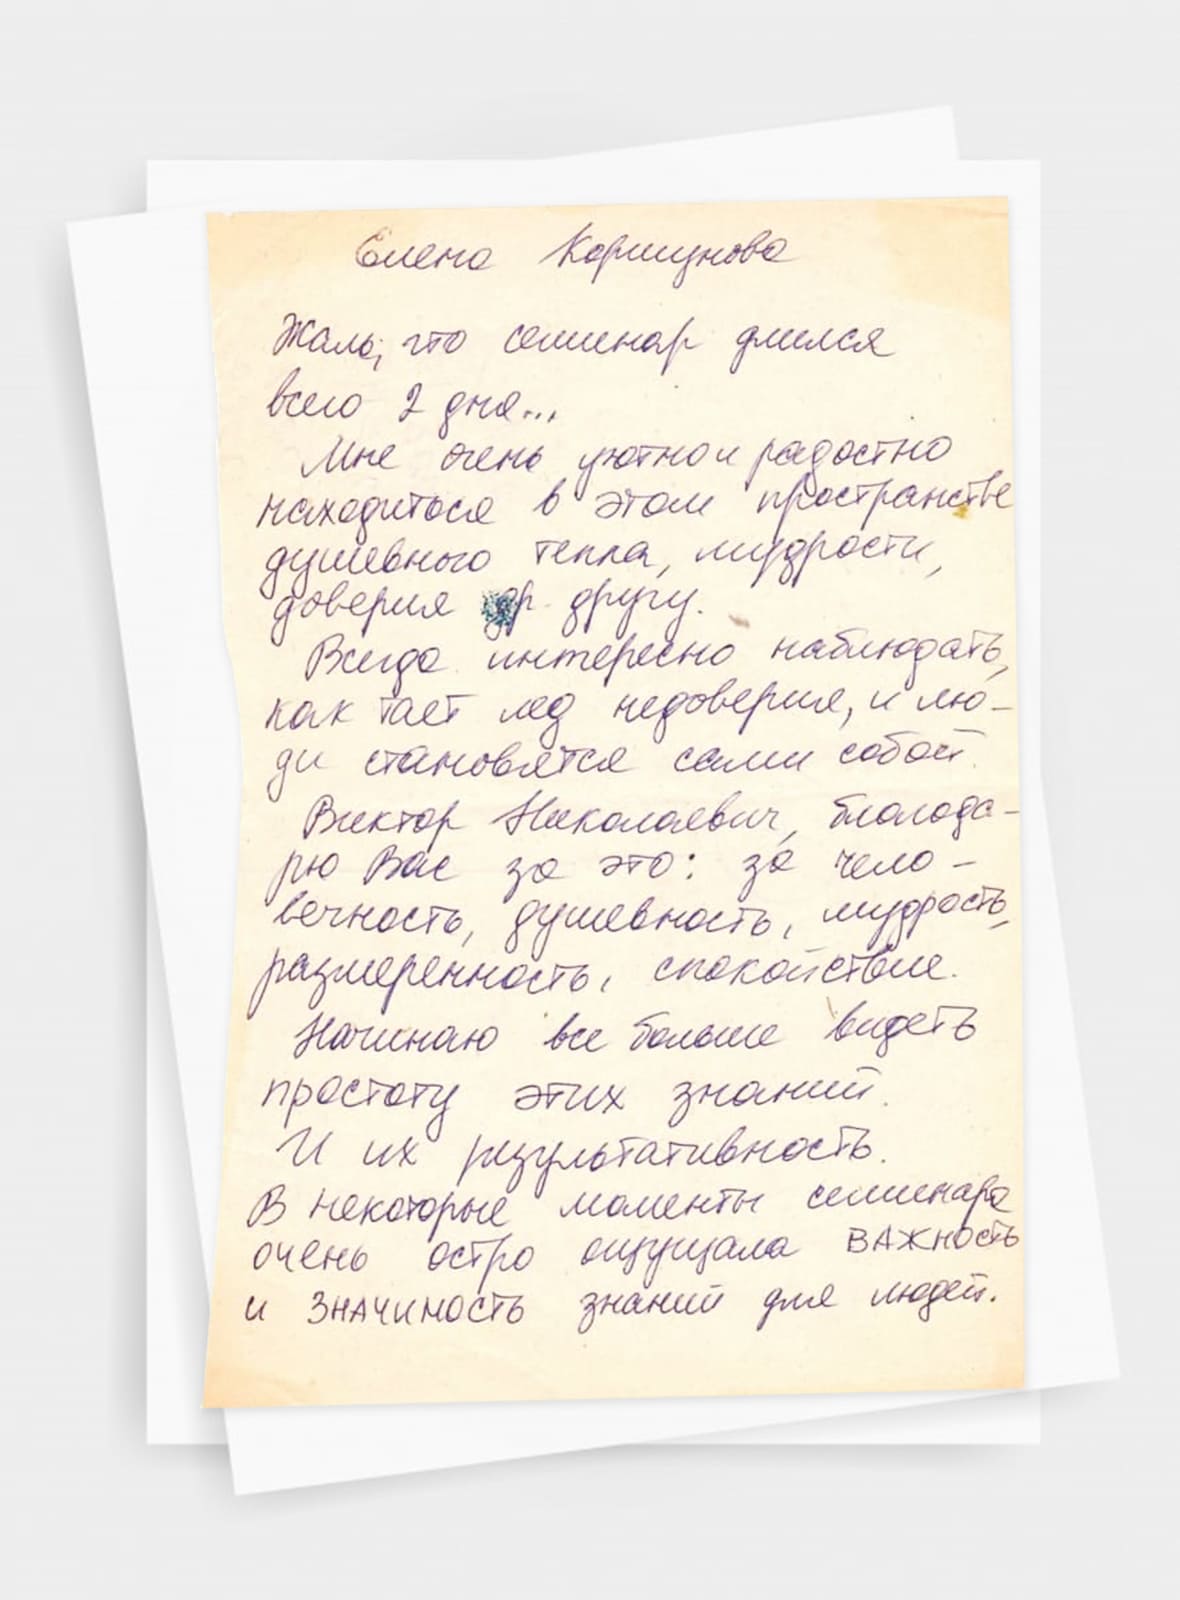 Елена Коршунова
Жаль, что семинар длился
всего 2 дня...
Мне очень уютно и радостно
находиться в этом пространстве
душевного тепла, мудрости,
доверия др. другу.
Всегда интересно наблюдать,
как тает лед недоверия, и лю-
ди становятся сами собой.
Виктор Николаевич, благода-
рю Вас за это: за чело-
вечность, душевность, мудрость,
размеренность, спокойствие.
Начинаю все больше видеть
простоту этих знаний.
И их результативность.
В некоторые моменты семинара
очень остро ощущала ВАЖНОСТЬ
и ЗНАЧИМОСТЬ знаний для людей.